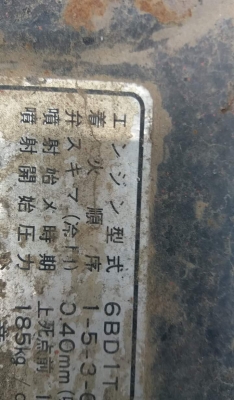 エンジン型式 6BD1T
着火順序 1-5-3-6
弁スキマ(冷間) 0.40mm
噴射始メ時期 上死点前 1
噴射開始圧力 185kg/c